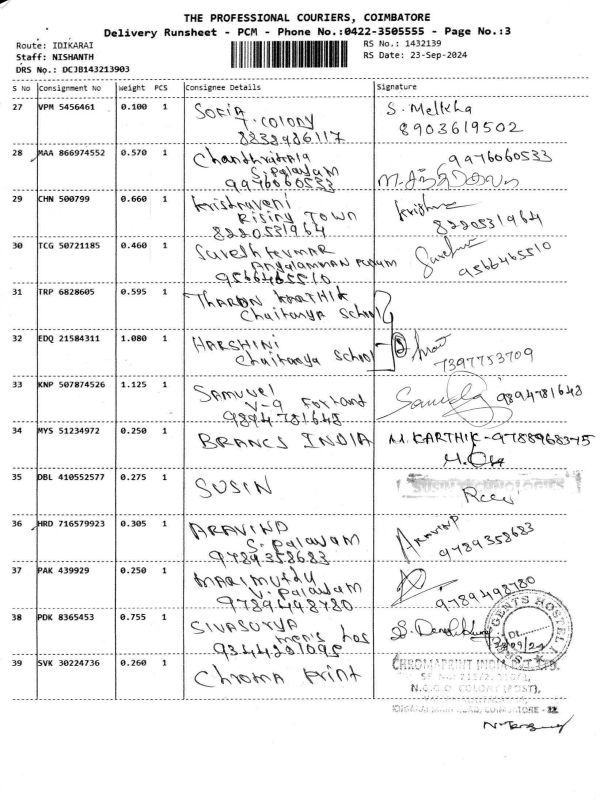 THE PROFESSIONAL COURIERS, COIMBATORE
Delivery Runsheet - PCM - Phone No.:0422-3505555 - Page No.:3
Route: IDIKARAI
RS No.: 1432139
Staff: NISHANTH
RS Date: 23-Sep-2024
DRS No.: DCJB143213903
S No Consignment No Weight PCS Consignee Details Signature
27 VPM 5456461 0.100 1 SOFIA S. Melkha
T. COLONY 8903619502
8232986117
28 MAA 866974552 0.570 1 9976060533
S. Palayam
9976060533
29 CHN 500799 0.660 1 Krishnaveni Krishna
Rising TOWN 8220531964
8220531964
30 TCG 50721185 0.460 1 Sureshkumar Suresh
9566465510
9566465510
31 TRP 6828605 0.595 1 THARUN KARTHIK
Chaitanya School
32 EDQ 21584311 1.080 1 HARSHINI
Chaitanya School 7397753709
33 KNP 507874526 1.125 1 SAMUVEL 9894781648
V-9 Foxland
9894781648
34 MYS 51234972 0.250 1 BRANCS INDIA M. KARTHIK - 9788968375
35 DBL 410552577 0.275 1 SUSIN SUSIN TECHNOLOGIES
36 HRD 716579923 0.305 1 ARAVIND ARAVIND
S. Palayam 9789358683
9789358683
37 PAK 439929 0.250 1 MARIMUTHU
V. Palayam 9789498780
9789498780
38 PDK 8365453 0.755 1 SIVASURYA
men's hos
9344201095
GENTS HOSTEL
39 SVK 30224736 0.260 1 Chroma Print CHROMAPRINT INDIA PVT. LTD.
N.G.G.O COLONY (POST),